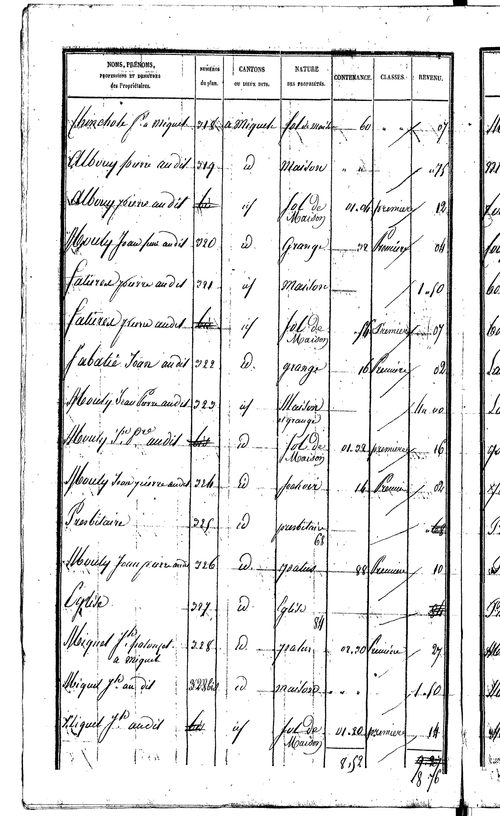 NOMS, PRÉNOMS, PROFESSIONS ET DEMEURES des Propriétaires. NUMÉROS du plan. CANTONS OU LIEUX DITS. NATURE DES PROPRIÉTÉS. CONTENANCE. CLASSES. REVENU.
a miguet 318 a Miguet Sol de maison 60 " " 07
Alboüy pierre au dit 319 id Maison " " " 75
Alboüy pierre au dit bis id Sol de Maison 01.04 première 12
Mouly Jean pierre au dit 320 id Grange 32 Première 04
Fatieres pierre au dit 321 id Maison 1.50
Fatieres pierre au dit bis id Sol de Maison 56 Première 07
Sabatié Jean au dit 322 id grange 16 Première 02
Mouly Jean Pierre au dit 323 id Maison et grange 00
Mouly Jn. Pre au dit bis id Sol de Maison 01.32 première 16
Mouly Jean pierre au dit 324 id 16 Première 02
Presbitaire 325 id presbitaire 68 68
Mouly Jean pierre au dit 326 id patus 88 Première 10
Eglise 327 id Eglise 84 84
Miguet Jh a miguet 328 id patus 02.30 Première 27
Miguet Jh au dit 328 bis id maison " " 1.50
Miguet Jh au dit bis id Sol de Maison 01.20 première 14
8,52 9 27
8 76